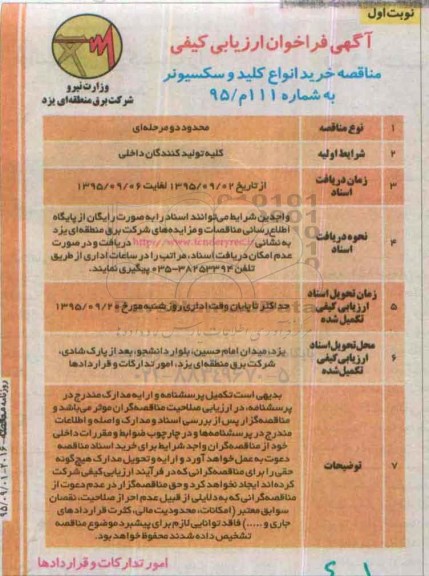 نوبت اول
آگهی فراخوان ارزیابی کیفی
مناقصه خرید انواع کلید و سکسیونر
به شماره ۱۱۱م/۹۵
وزارت نیرو
شرکت برق منطقه‌ای یزد
۱ نوع مناقصه محدود دو مرحله‌ای
۲ شرایط اولیه کلیه تولید کنندگان داخلی
۳ زمان دریافت اسناد از تاریخ ۱۳۹۵/۰۹/۰۲ لغایت ۱۳۹۵/۰۹/۰۶
۴ نحوه دریافت اسناد
واجدین شرایط می‌توانند اسناد را به صورت رایگان از پایگاه
اطلاع رسانی مناقصات و مزایده‌های شرکت برق منطقه‌ای یزد
به نشانی http://www.tenderyrec.ir دریافت و در صورت
عدم امکان دریافت اسناد، مراتب را در ساعات اداری از طریق
تلفن ۳۸۲۵۳۳۹۴-۰۳۵ پیگیری نمایند.
۵ زمان تحویل اسناد
ارزیابی کیفی
تکمیل شده
حداکثر تا پایان وقت اداری روز شنبه مورخ ۱۳۹۵/۰۹/۲۰
۶ محل تحویل اسناد
ارزیابی کیفی
تکمیل شده
یزد، میدان امام حسین، بلوار دانشجو، بعد از پارک شادی،
شرکت برق منطقه‌ای یزد، امور تدارکات و قراردادها
۷ توضیحات
بدیهی است تکمیل پرسشنامه و ارایه مدارک مندرج در
پرسشنامه، در ارزیابی صلاحیت مناقصه‌گران موثر می‌باشد و
مناقصه‌گزار پس از بررسی اسناد و مدارک واصله و اطلاعات
مندرج در پرسشنامه‌ها و در چارچوب ضوابط و مقررات داخلی
خود از مناقصه‌گران واجد شرایط برای خرید اسناد مناقصه
دعوت به عمل خواهد آورد و ارایه و تحویل مدارک هیچ‌گونه
حقی را برای مناقصه‌گرانی که در فرآیند ارزیابی کیفی شرکت
کرده‌اند ایجاد نخواهد کرد و حق مناقصه‌گزار در عدم دعوت از
مناقصه‌گرانی که به دلایلی از قبیل عدم احراز صلاحیت، نقصان
سوابق معتبر (امکانات، محدودیت مالی، کثرت قراردادهای
جاری و .....) فاقد توانایی لازم برای پیشبرد موضوع مناقصه
تشخیص داده شدند محفوظ خواهد بود.
امور تدارکات و قراردادها